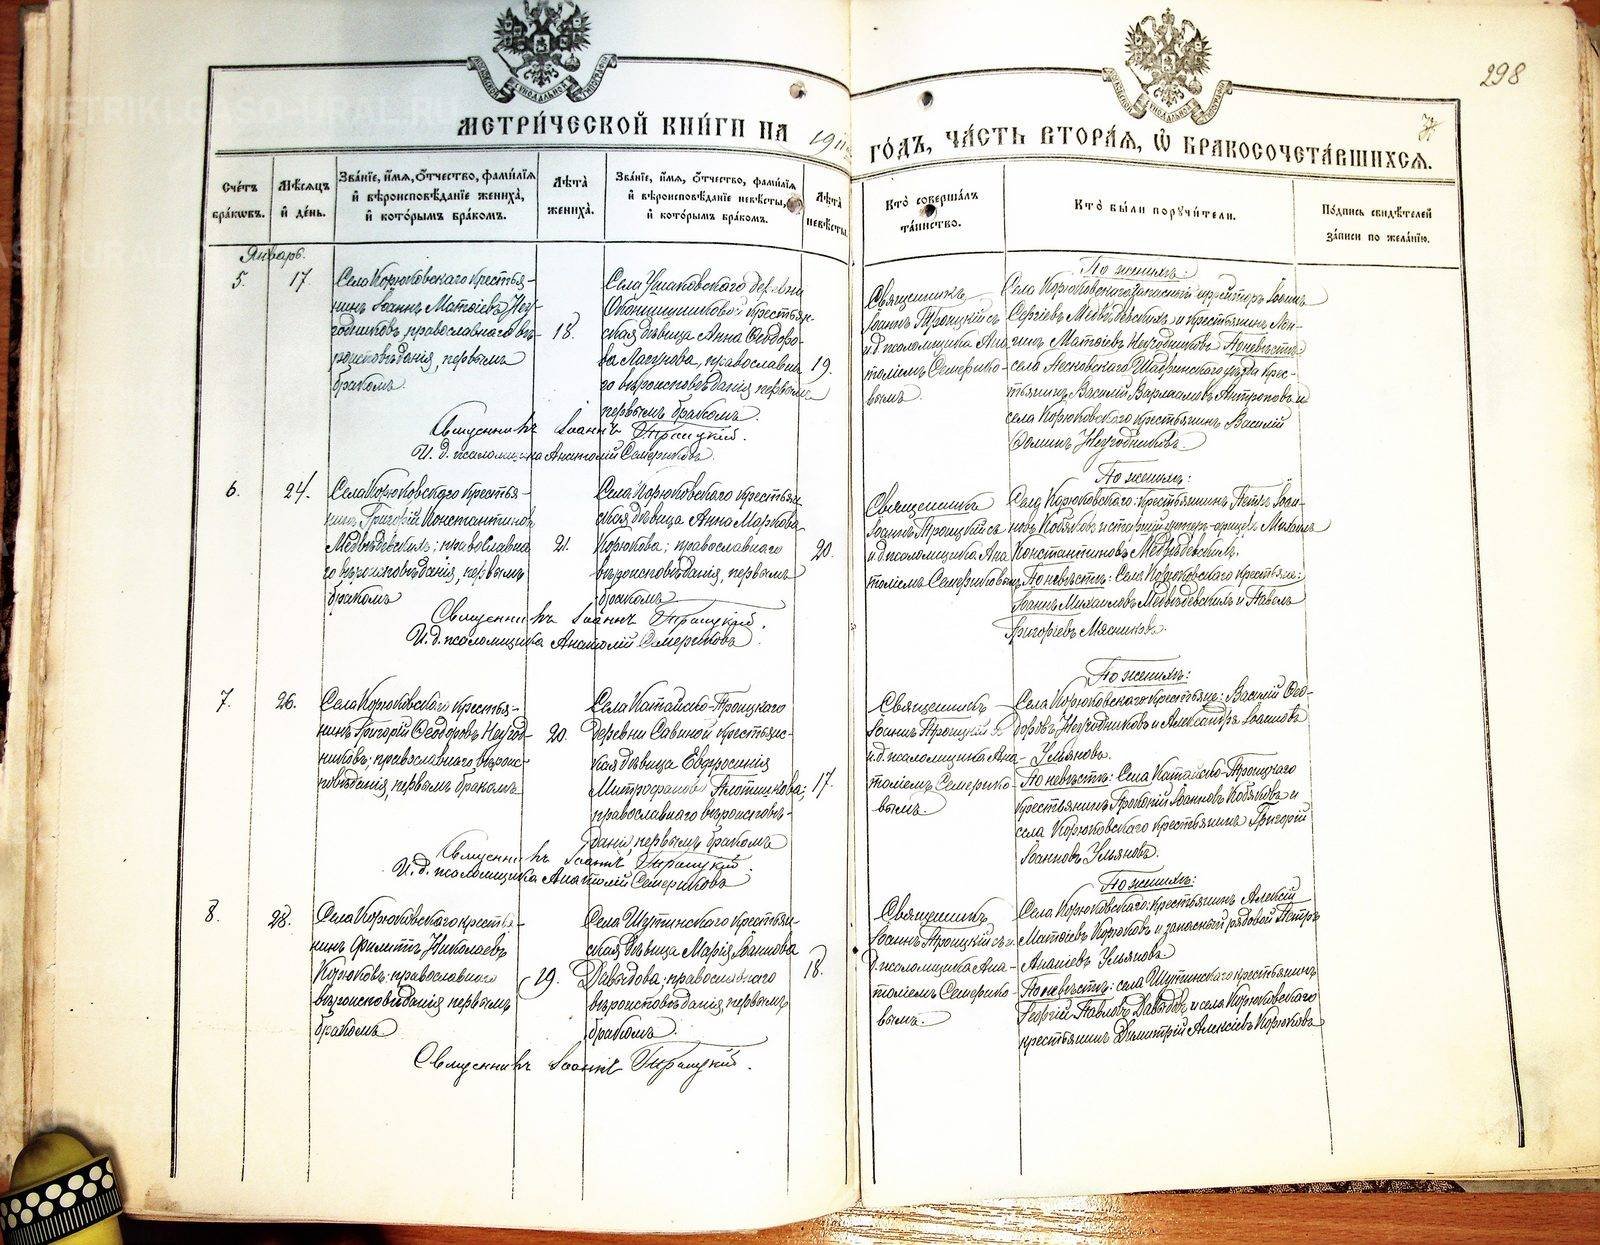 298
МЕТРИ́ЧЕСКОЙ КНИ́ГИ НА 1911 ГО́ДЪ, ЧА́СТЬ ВТОРА́Я, Ѡ БРАКОСОЧЕТА́ВШИХСЯ.
Сче́тъ бра́ковъ.
Мѣ́сяцъ и́ де́нь.
Зва́ніе, и́мя, о́тчество, фами́лія и́ вѣроисповѣ́даніе жениха̀, и́ кото́рымъ бра́комъ.
Лѣ́та жениха̀.
Зва́ніе, и́мя, о́тчество, фами́лія и́ вѣроисповѣ́даніе невѣ́сты, и́ кото́рымъ бра́комъ.
Лѣ́та невѣ́сты.
Кто̀ соверша́лъ та́инство.
Кто̀ бы́ли поручи́тели.
По́дпись свидѣ́телей за́писи по жела́нію.
Январь.
5.
17.
Села Корюковскаго крестья-
нинъ Іоаннъ Матѳіевъ Неу-
годниковъ, православнаго вѣ-
роисповѣданія, первымъ
бракомъ.
18.
Села Ушаковскаго деревни
крестьян-
ская дѣвица Анна Ѳеодоро-
ва православна-
го вѣроисповѣданія первымъ
первымъ бракомъ.
19.
Священникъ
Іоаннъ Троицкій съ
и.д. псаломщика Ана-
толіемъ Семерико-
вымъ.
По женихѣ:
Села Корюковскаго запасный ефрейторъ Іоаннъ
Сергіевъ Медвѣдевскихъ и крестьянинъ Лон-
гинъ Матѳіевъ Неугодниковъ. По невѣстѣ:
села Лесновскаго Шадринскаго уѣзда крес-
тьянинъ Василій Варлаамовъ Антроповъ и
села Корюковскаго крестьянинъ Василій
Ѳоминъ Неугодниковъ
Священникъ Іоаннъ Троицкій.
И. д. псаломщика Анатолій Семериковъ.
6.
24.
Села Корюковскаго крестья-
нинъ Григорій Константиновъ
Медвѣдевскихъ; православна
го вѣроисповѣданія, первымъ
бракомъ
21.
Села Корюковскаго крестьян
ская дѣвица Анна Маркова
Корюкова; православнаго
вѣроисповѣданія, первымъ
бракомъ
20.
Священникъ
Іоаннъ Троицкій съ
и д. псаломщика Ана
толіемъ Семериковымъ
По женихѣ:
Села Корюковскаго: крестьянинъ Петръ Іоан-
новъ Кобяковъ и старшій унтеръ-офицеръ Михаилъ
Константиновъ Медвѣдевскихъ.
По невѣстѣ: Села Корюковскаго крестьяне:
Іоаннъ Михаиловъ Медвѣдевскихъ и Павелъ
Григоріевъ Мясниковъ.
Священникъ Іоаннъ Троицкій.
И. д. псаломщика Анатолій Семериковъ
7.
26.
Села Корюковскаго крестья-
нинъ Григорій Ѳеодоровъ Неугод-
никовъ; православнаго вѣроис-
повѣданія, первымъ бракомъ.
20.
Села Катайско-Троицкаго
деревни Савиной крестьянс-
кая дѣвица Евфросинія
Митрофанова Плотникова;
православнаго вѣроисповѣ-
данія, первымъ бракомъ
17.
Священникъ
Іоаннъ Троицкій съ
и.д. псаломщика Ана-
толіемъ Семерико-
вымъ.
По женихѣ:
Села Корюковскаго крестьяне: Василій Ѳео-
доровъ Неугодниковъ и Александръ Іоанновъ
Ульяновъ.
По невѣстѣ: Села Катайско-Троицкаго
крестьянинъ Прокопій Іоанновъ Кобяковъ и
села Корюковскаго крестьянинъ Григорій
Іоанновъ Ульяновъ.
Священникъ Іоаннъ Троицкій.
И. д. псаломщика Анатолій Семериковъ
8.
28.
Села Корюковскаго крестья-
нинъ Филиппъ Николаевъ
Корюковъ: православнаго
вѣроисповѣданія первымъ
бракомъ
19.
Села Шутинскаго крестьян-
ская дѣвица Марія Іоаннова
Давыдова: православнаго
вѣроисповѣданія, первымъ
бракомъ.
18.
Священникъ
Іоаннъ Троицкій съ и
д. псаломщика Ана-
толіемъ Семерико-
вымъ.
По женихѣ:
Села Корюковскаго: крестьянинъ Алексій
Матѳіевъ Корюковъ и запасный рядовой Петръ
Ананіевъ Ульяновъ
По невѣстѣ: села Шутинскаго крестьянинъ
Георгій Павловъ Давыдовъ и села Корюковскаго
крестьянинъ Димитрій Алексіевъ Корюковъ
Священникъ Іоаннъ Троицкій.